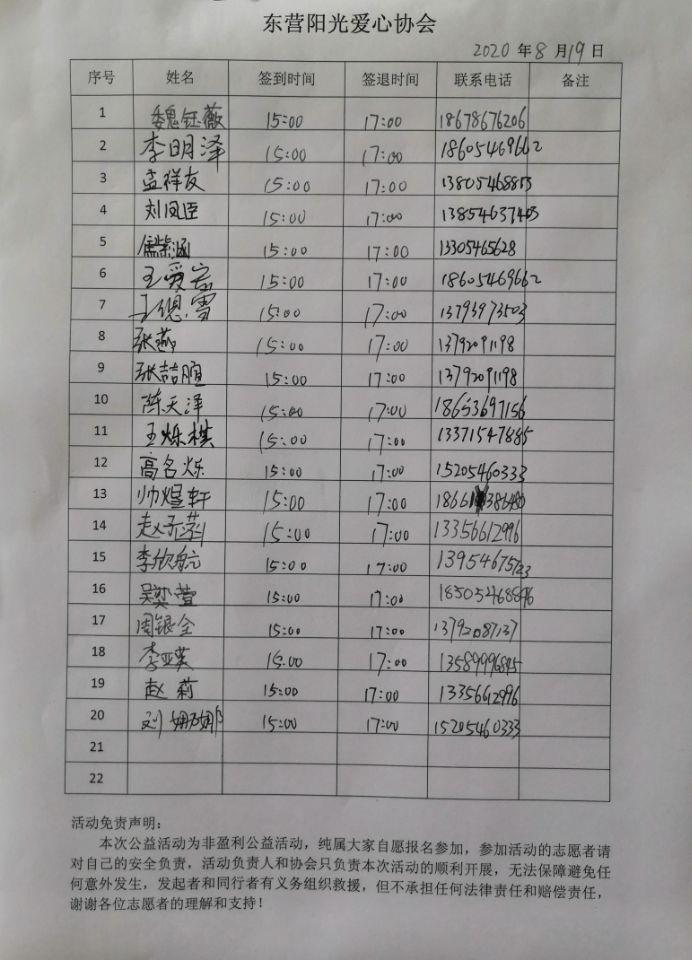 东营阳光爱心协会
2020 年 8 月 19 日
序号 姓名 签到时间 签退时间 联系电话 备注
1 魏钰薇 15:00 17:00 18678676206
2 李明泽 15:00 17:00 18605469662
3 孟祥友 15:00 17:00
4 刘凤臣 15:00 17:00 13854637403
5 15:00 17:00 13305465628
6 王爱宏 15:00 17:00 18605469662
7 15:00 17:00 13793973503
8 张燕 15:00 17:00 13792091198
9 张喆暄 15:00 17:00 13792091198
10 陈天泽 15:00 17:00 18653697156
11 王烁棋 15:00 17:00 13371547885
12 高名烁 15:00 17:00 15205460333
13 帅煜轩 15:00 17:00
14 15:00 17:00 13356612996
15 李欣航 15:00 17:00 13954675123
16 15:00 17:00 18505468846
17 周银全 15:00 17:00 13792087137
18 李亚英 15:00 17:00
19 赵莉 15:00 17:00 13356612996
20 刘娜娜 15:00 17:00 15205460333
21
22
活动免责声明：
本次公益活动为非盈利公益活动，纯属大家自愿报名参加，参加活动的志愿者请
对自己的安全负责，活动负责人和协会只负责本次活动的顺利开展，无法保障避免任
何意外发生，发起者和同行者有义务组织救援，但不承担任何法律责任和赔偿责任，
谢谢各位志愿者的理解和支持！